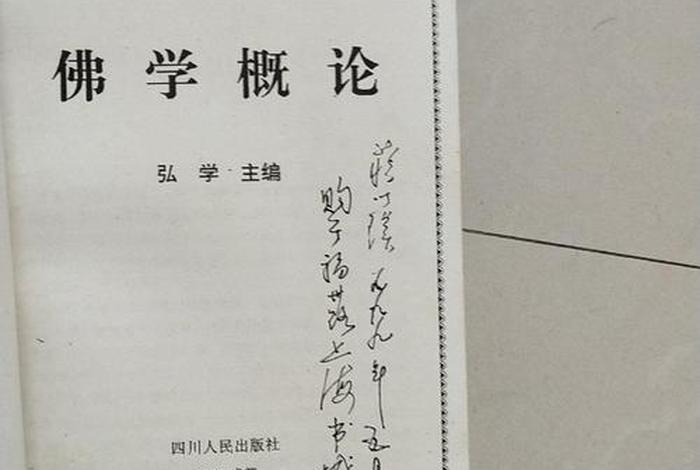 佛学概论
弘 学·主编
九九年五月
购于福州路上海书城
四川人民出版社